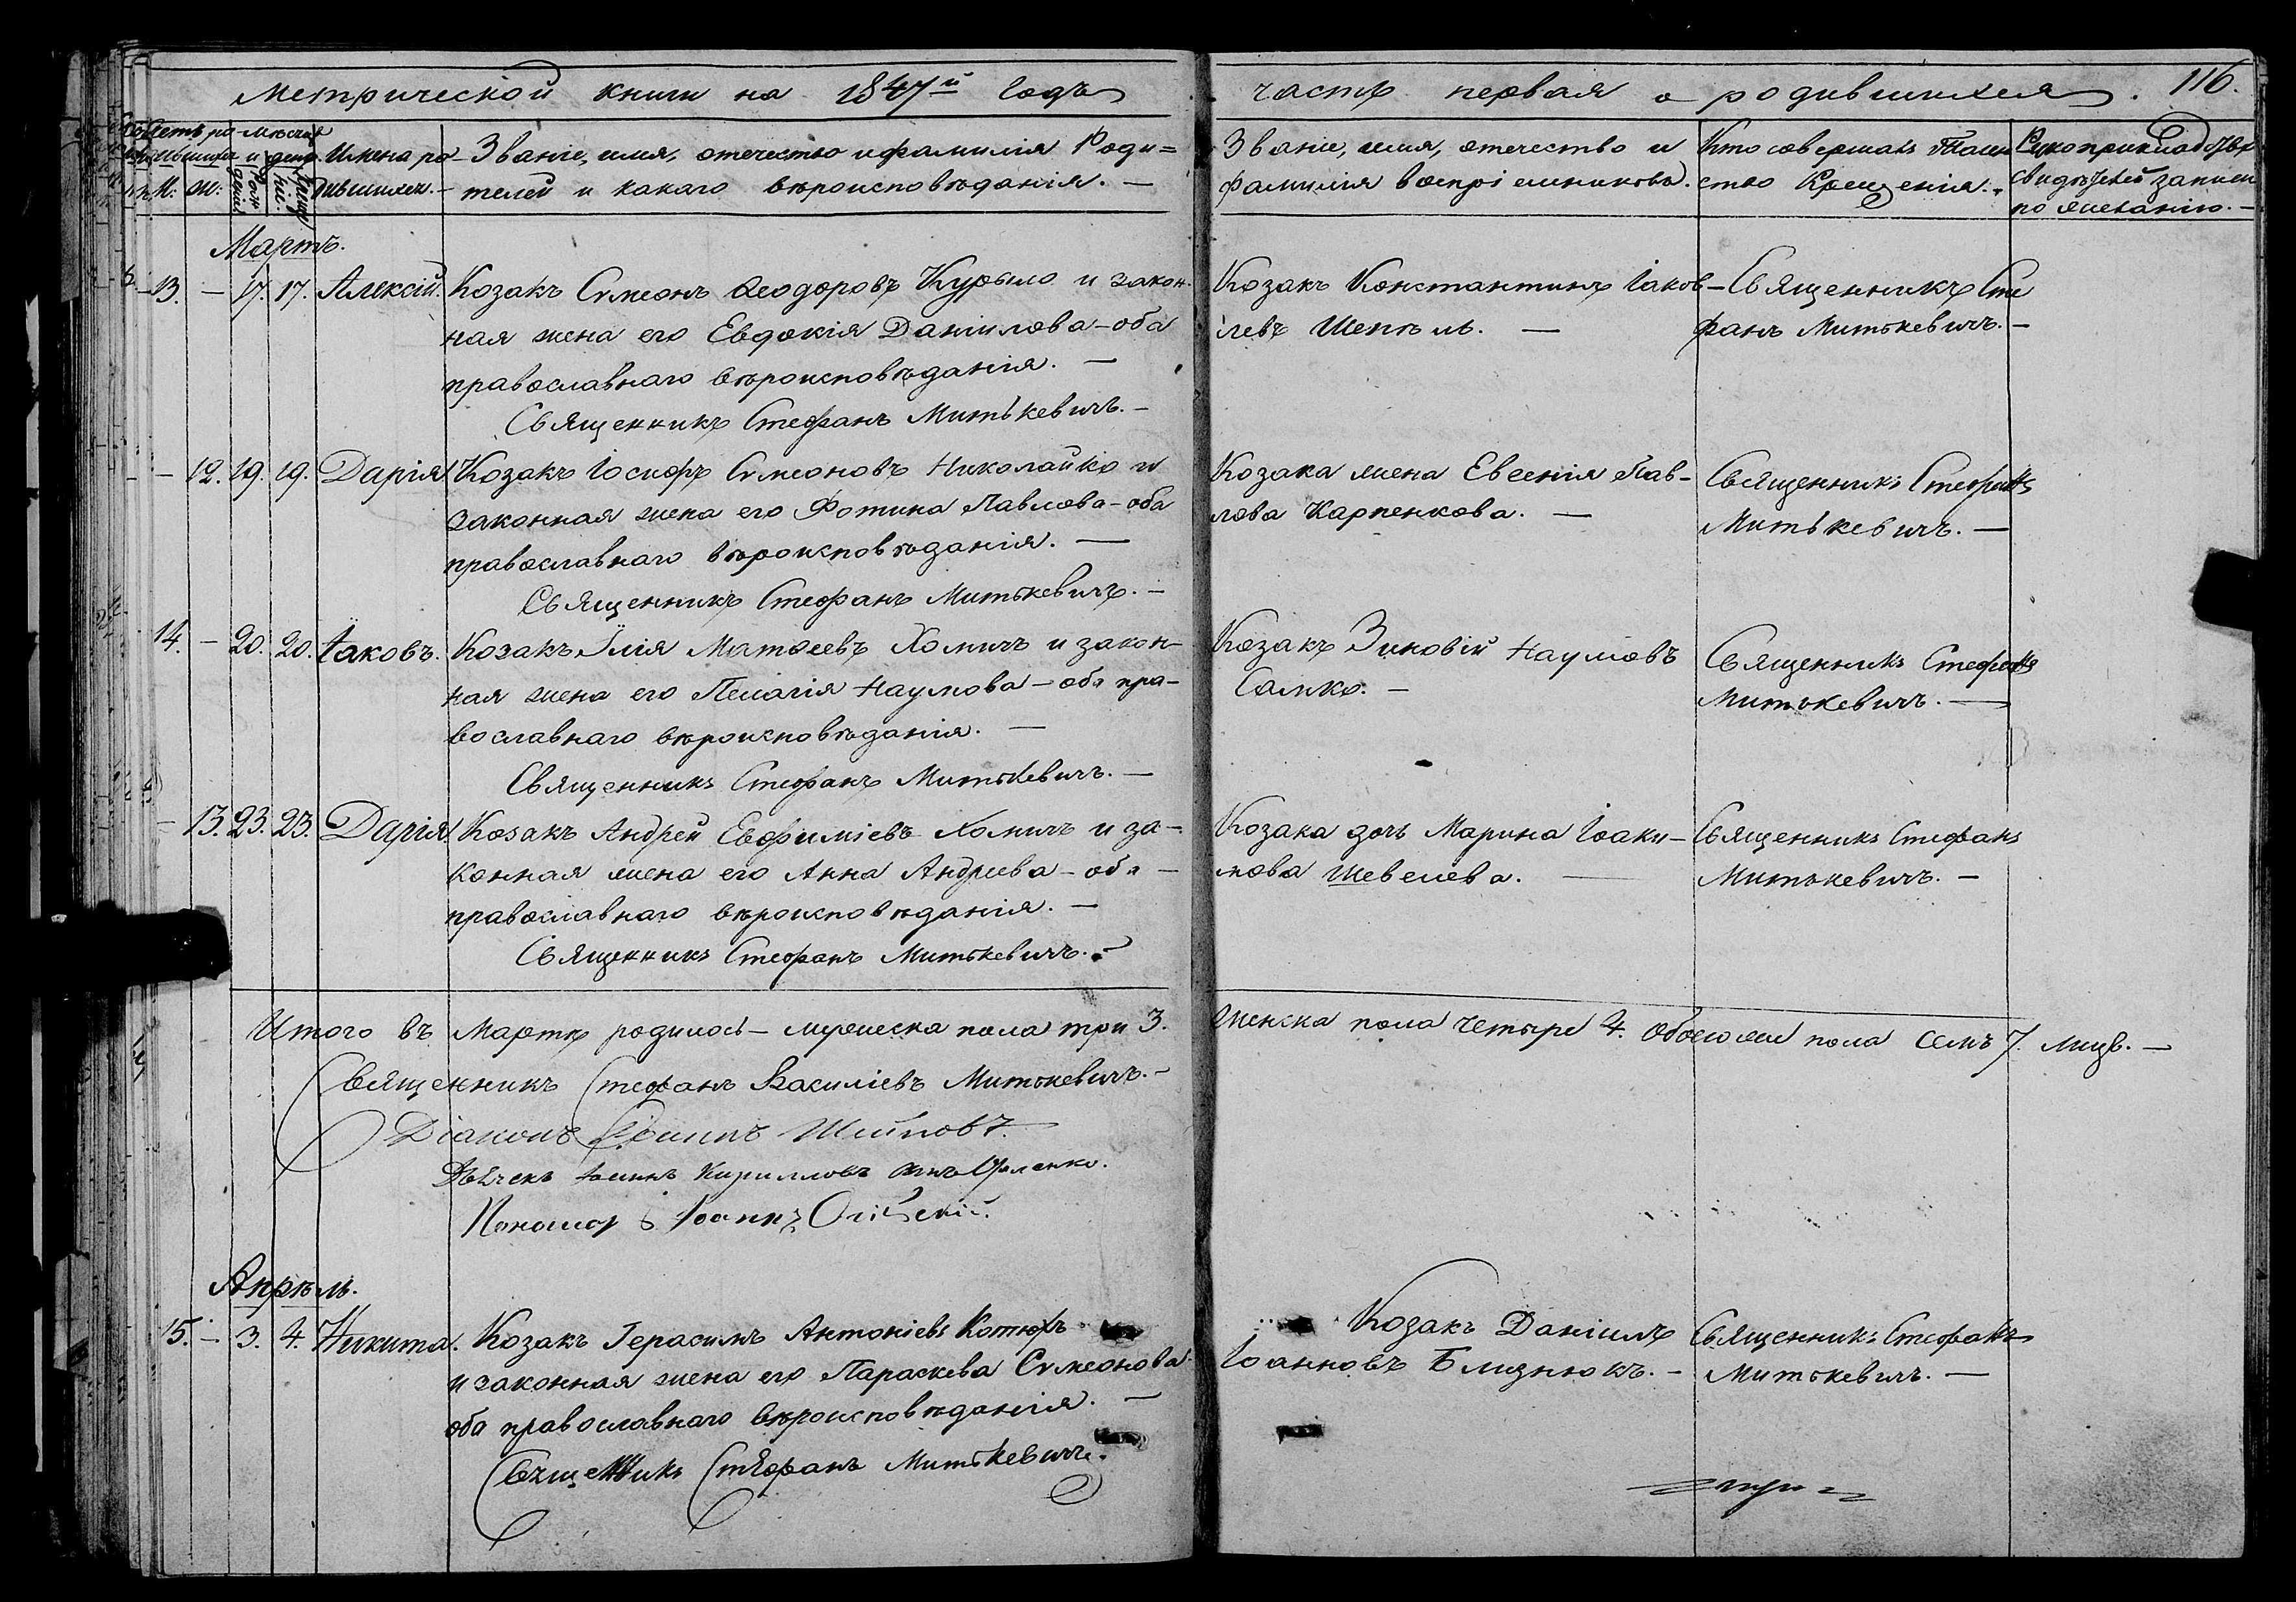 Метрической книги на 1847й годъ
часть первая о родившихся. 116.
Имена ро-
дившихся.
Званіе, имя, отечество и фамилія Роди=
телей и какаго вѣроисповѣданія. —
Званіе, имя, отечество и
фамилія воспріемниковъ.
Кто совершалъ Таин
ство Крещенія.
Рукоприкладство
свидѣтелей записи
по желанію. —
М: Ж:
Мартъ.
13. — 17. 17. Алексій. Козакъ Сѵмеонъ Ѳеодоровъ Курыло и закон-
ная жена его Евдокія Даніилова — оба
православнаго вѣроисповѣданія. —
Священникъ Стефанъ Митькевичъ. —
Козакъ Константинъ Іаков-
левъ Шепель. —
Священникъ Сте
фанъ Митькевичъ. —
— 12. 19. 19. Дарія. Козакъ Іосифъ Сѵмеоновъ Николайко и
законная жена его Фотина Павлова — оба
православнаго вѣроисповѣданія. —
Священникъ Стефанъ Митькевичъ. —
Козака жена Евгенія Пав-
лова Карпенкова. —
Священникъ Стефанъ
Митькевичъ. —
14. — 20. 20. Іаковъ. Козакъ Илія Матѳеевъ Хомичъ и закон-
ная жена его Пелагія Наумова — оба пра-
вославнаго вѣроисповѣданія. —
Священникъ Стефанъ Митькевичъ. —
Козакъ Зиновій Наумовъ
Самко. —
Священникъ Стефанъ
Митькевичъ. —
— 13. 23. 23. Дарія. Козакъ Андрей Евфиміевъ Хомичъ и за-
конная жена его Анна Андреева — оба —
православнаго вѣроисповѣданія. —
Священникъ Стефанъ Митькевичъ. —
Козака дочь Марина Іоаки-
мова Шевелева. —
Священникъ Стефанъ
Митькевичъ. —
Итого въ Мартѣ родилось — мужеска пола три 3.
Женска пола четыре 4. Обоего пола семь 7. лицъ. —
Священникъ Стефанъ Василіевъ Митькевичъ. —
Діаконъ
Дьячекъ Кирилловъ
Пономарь Іоаннъ
Апрѣль.
15. — 3. 4. Никита. Козакъ Герасимъ Антоніевъ Котюхъ
и законная жена его Параскева Сѵмеонова
оба православнаго вѣроисповѣданія. —
Священникъ Стефанъ Митькевичъ.
Козакъ Даніилъ
Іоанновъ Близнюкъ. —
Священникъ Стефанъ
Митькевичъ. —